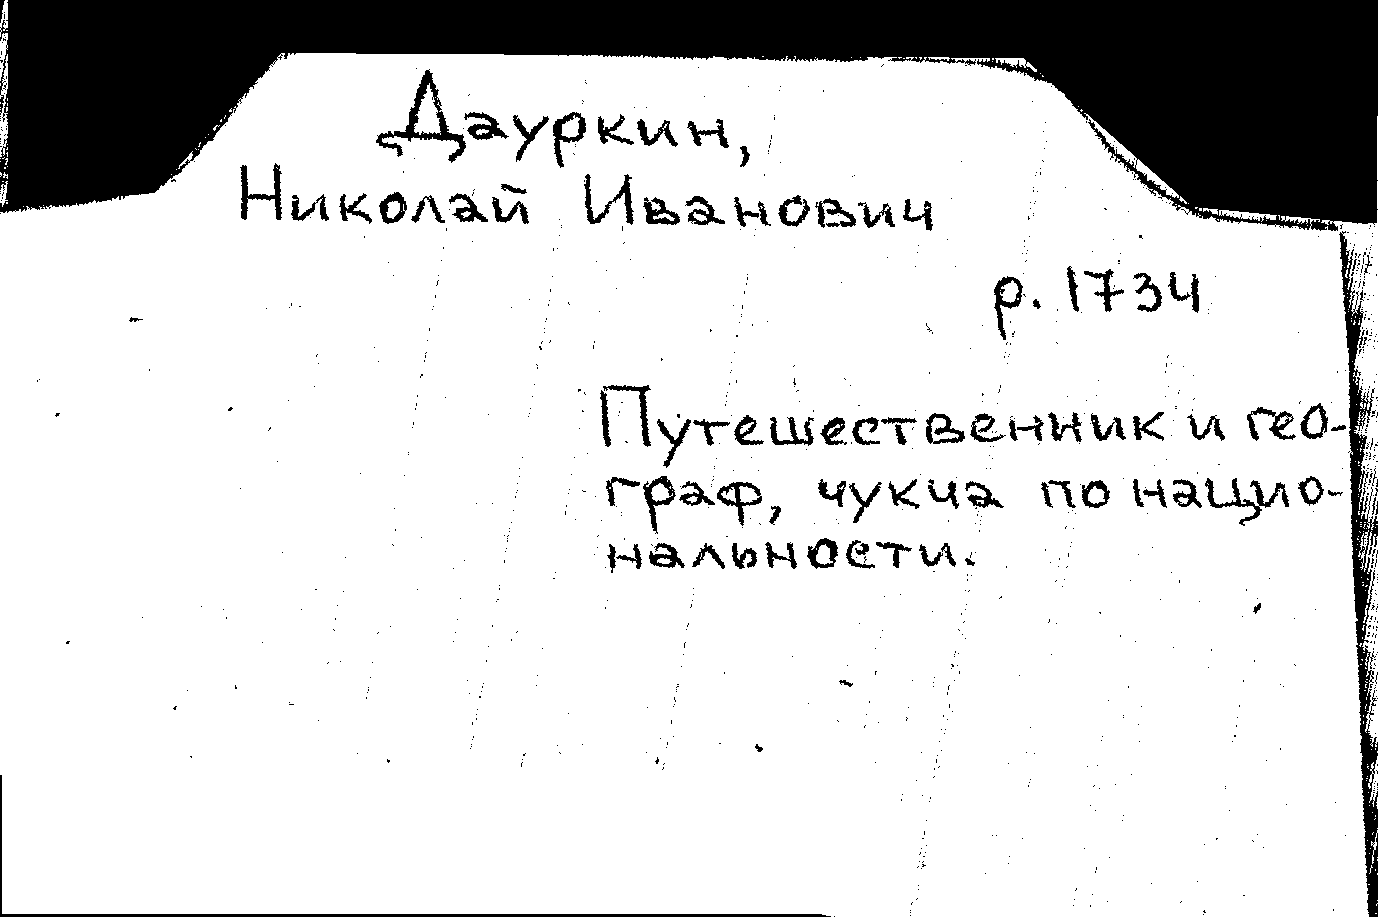 Дауркин,
Николай Иванович
р. 1734
Путешественник и гео-
граф, чукча по нацио-
нальности.